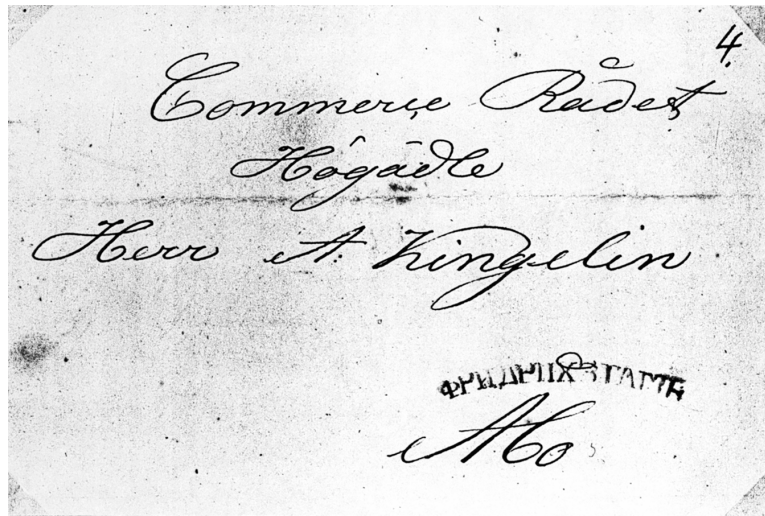 4.
Commerce Rådet
Högädle
Herr A. Kingelin
ФРИДРИХСГАМЪ
Åbo